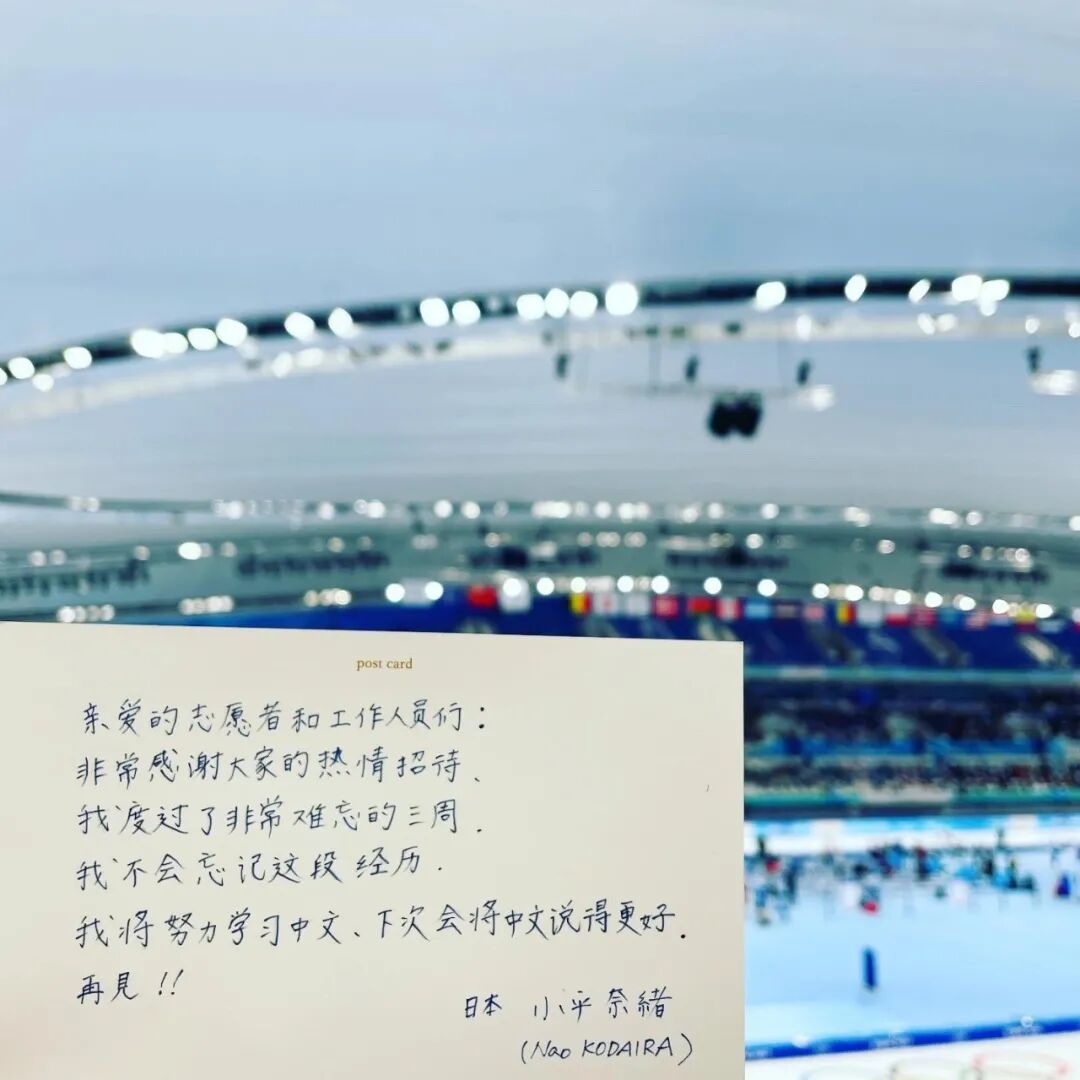 post card
亲爱的志愿者和工作人员们：
非常感谢大家的热情招待、
我度过了非常难忘的三周.
我不会忘记这段经历.
我将努力学习中文、下次会将中文说得更好.
再見!!
日本 小平奈緒
(Nao KODAIRA)